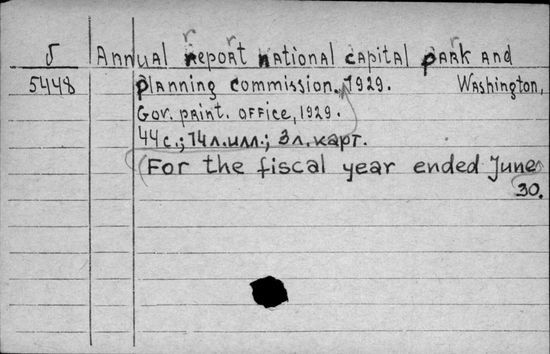 б Annual report national capital park and
5448 planning commission. 1929. Washington,
Gov. print. office, 1929.
44с.; 14л.илл.; 3л.карт.
(For the fiscal year ended June
30.